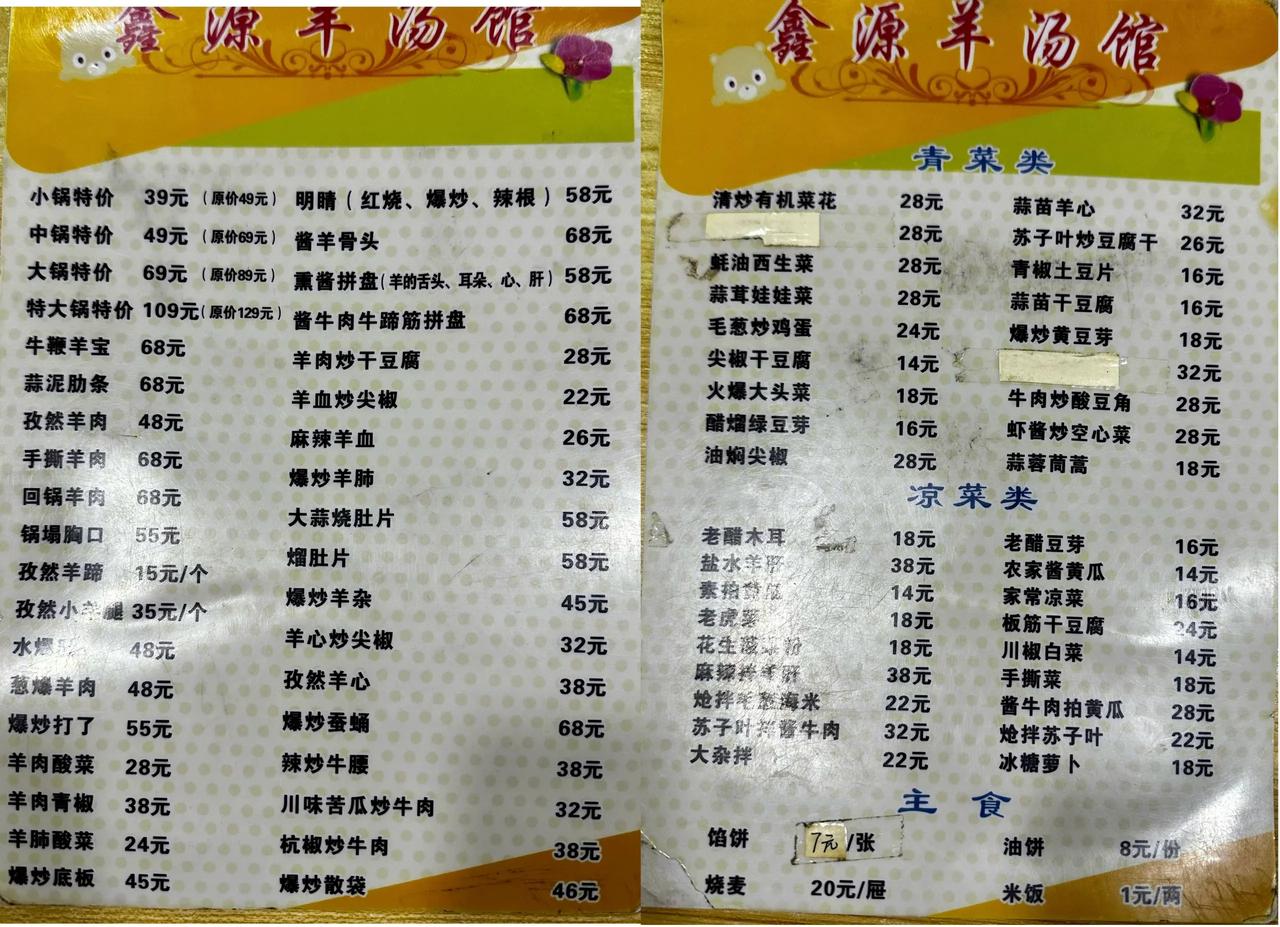 鑫源羊汤馆
小锅特价 39元 (原价49元)
中锅特价 49元 (原价69元)
大锅特价 69元 (原价89元)
特大锅特价 109元 (原价129元)
牛鞭羊宝 68元
蒜泥肋条 68元
孜然羊肉 48元
手撕羊肉 68元
回锅羊肉 68元
锅塌胸口 55元
孜然羊蹄 15元/个
孜然小羊腿 35元/个
水爆 48元
葱爆羊肉 48元
爆炒打了 55元
羊肉酸菜 28元
羊肉青椒 38元
羊肺酸菜 24元
爆炒底板 45元
明睛(红烧、爆炒、辣根) 58元
酱羊骨头 68元
熏酱拼盘(羊的舌头、耳朵、心、肝) 58元
酱牛肉牛蹄筋拼盘 68元
羊肉炒干豆腐 28元
羊血炒尖椒 22元
麻辣羊血 26元
爆炒羊肺 32元
大蒜烧肚片 58元
熘肚片 58元
爆炒羊杂 45元
羊心炒尖椒 32元
孜然羊心 38元
爆炒蚕蛹 68元
辣炒牛腰 38元
川味苦瓜炒牛肉 32元
杭椒炒牛肉 38元
爆炒散袋 46元
鑫源羊汤馆
青菜类
清炒有机菜花 28元
28元
蚝油西生菜 28元
蒜茸娃娃菜 28元
毛葱炒鸡蛋 24元
尖椒干豆腐 14元
火爆大头菜 18元
醋熘绿豆芽 16元
油焖尖椒 28元
蒜苗羊心 32元
苏子叶炒豆腐干 26元
青椒土豆片 16元
蒜苗干豆腐 16元
爆炒黄豆芽 18元
32元
牛肉炒酸豆角 28元
虾酱炒空心菜 28元
蒜蓉茼蒿 18元
凉菜类
老醋木耳 18元
盐水羊肝 38元
素拍黄瓜 14元
老虎菜 18元
花生菠菜粉 18元
麻辣拌羊肝 38元
炝拌毛葱海米 22元
苏子叶拌酱牛肉 32元
大杂拌 22元
老醋豆芽 16元
农家酱黄瓜 14元
家常凉菜 16元
板筋干豆腐 24元
川椒白菜 14元
手撕菜 18元
酱牛肉拍黄瓜 28元
炝拌苏子叶 22元
冰糖萝卜 18元
主食
馅饼 7元/张
烧麦 20元/屉
油饼 8元/份
米饭 1元/两